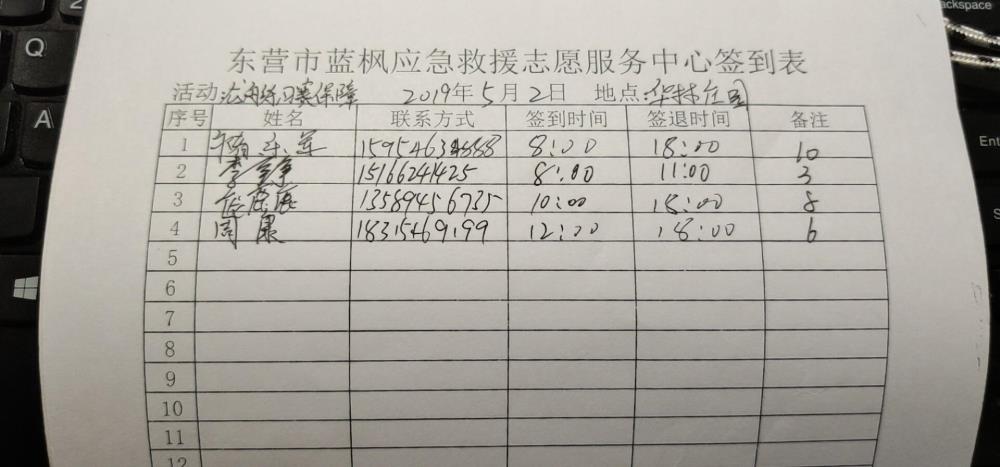 东营市蓝枫应急救援志愿服务中心签到表
活动: 保障 2019年5月2日 地点:华林庄园
序号 姓名 联系方式 签到时间 签退时间 备注
1 8:00 18:00 10
2 15166244425 8:00 11:00 3
3 13589456735 10:00 18:00 8
4 周康 18315469199 12:00 18:00 6
5
6
7
8
9
10
11
12
Q
A
Backspace
Ent